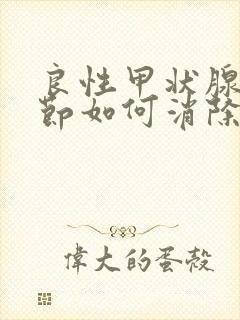 良性甲状腺
节如何消除
偉大的蛋殼